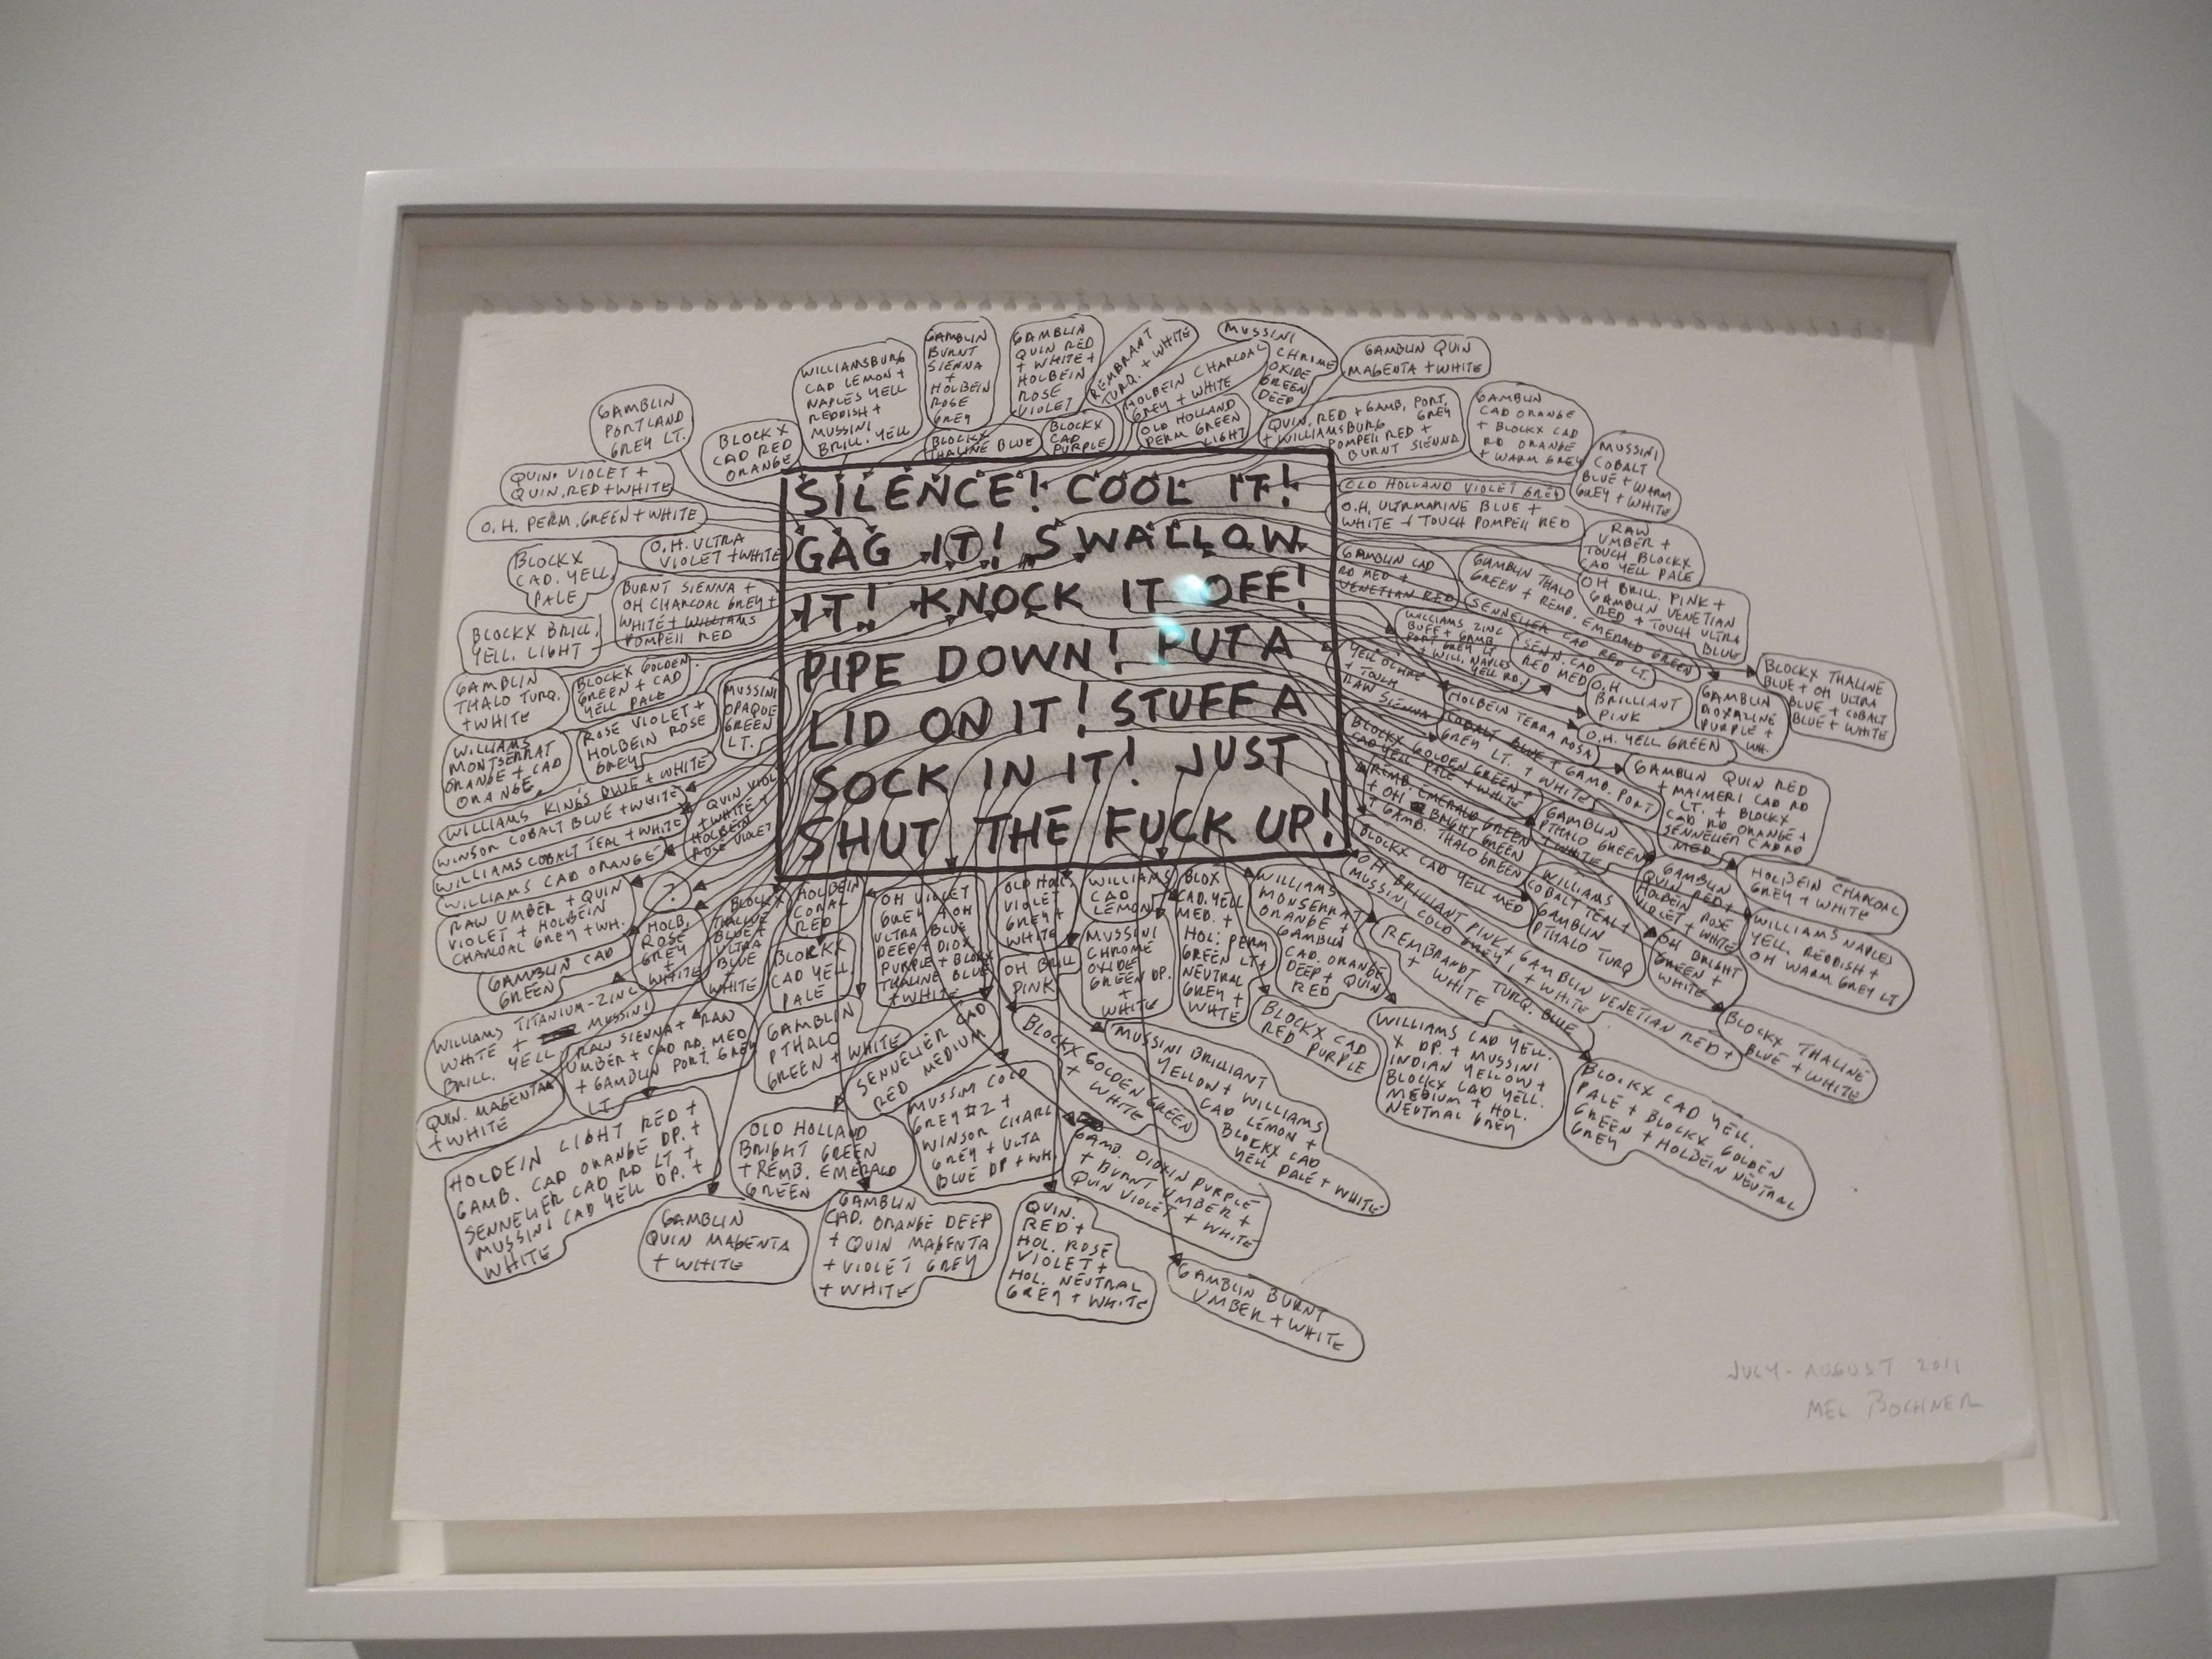 GAMBLIN
PORTLAND
GREY LT.
BLOCKX
CAD RED
ORANGE
WILLIAMSBURG
CAD LEMON +
NAPLES YELL
REDDISH +
MUSSINI
BRILL. YELL
GAMBLIN
BURNT
SIENNA
+
HOLBEIN
ROSE
GREY
BLOCKX
THALINE BLUE
GAMBLIN
QUIN RED
+ WHITE +
HOLBEIN
ROSE
VIOLET
BLOCKX
CAD
PURPLE
REMBRANT
TURQ. + WHITE
HOLBEIN CHARCOAL
GREY + WHITE
OLD HOLLAND
PERM GREEN
LIGHT
MUSSINI
CHROME
OXIDE
GREEN
DEEP
GAMBLIN QUIN
MAGENTA + WHITE
QUIN. RED + GAMB. PORT.
GREY
+ WILLIAMSBURG
POMPEII RED +
BURNT SIENNA
GAMBLIN
CAD ORANGE
+ BLOCKX CAD
RD ORANGE
+ WARM GREY
MUSSINI
COBALT
BLUE + WARM
GREY + WHITE
QUIN. VIOLET +
QUIN. RED + WHITE
O.H. PERM. GREEN + WHITE
O.H. ULTRA
VIOLET + WHITE
BLOCKX
CAD. YELL.
PALE
BURNT SIENNA +
OH CHARCOAL GREY +
WHITE + WILLIAMS
POMPEII RED
BLOCKX BRILL.
YELL. LIGHT
GAMBLIN
THALO TURQ.
+ WHITE
BLOCKX GOLDEN
GREEN + CAD
YELL PALE
MUSSINI
OPAQUE
GREEN
LT.
ROSE VIOLET +
HOLBEIN ROSE
GREY
WILLIAMS
MONTSERRAT
ORANGE + CAD
ORANGE
WILLIAMS KINGS BLUE + WHITE
WINSOR COBALT BLUE + WHITE
WILLIAMS COBALT TEAL + WHITE
WILLIAMS CAD ORANGE
QUIN VIOL
+ WHITE +
HOLBEIN
ROSE VIOLET
SILENCE! COOL IT!
GAG IT! SWALLOW
IT! KNOCK IT OFF!
PIPE DOWN! PUT A
LID ON IT! STUFF A
SOCK IN IT! JUST
SHUT THE FUCK UP!
OLD HOLLAND VIOLET GREY
O.H. ULTRAMARINE BLUE +
WHITE + TOUCH POMPEII RED
RAW
UMBER +
TOUCH BLOCKX
CAD YELL PALE
GAMBLIN CAD
RD MED +
VENETIAN RED
GAMBLIN THALO
GREEN + REMB. EMERALD GREEN
OH BRILL. PINK +
GAMBLIN VENETIAN
RED + TOUCH ULTRA
BLUE
SENNELIER CAD RED LT.
WILLIAMS ZINC
BUFF + GAMB
PORT GREY LT
+ WILL. NAPLES
YELL RD.
SENN. CAD
RED MED
O.H
BRILLIANT
PINK
YELL OCHRE
+ TOUCH
RAW SIENNA
HOLBEIN TERRA ROSA
GAMBLIN
DIOXAZINE
PURPLE +
WH.
BLOCKX THALINE
BLUE + OH ULTRA
BLUE + COBALT
BLUE + WHITE
O.H. YELL GREEN
COBALT BLUE + GAMB. PORT
GREY LT. + WHITE
BLOCKX GOLDEN GREEN +
CAD YELL PALE + WHITE
REMB. EMERALD GREEN
+ OH BRIGHT GREEN
+ GAMB. THALO GREEN
GAMBLIN QUIN RED
+ MAIMERI CAD RD
LT. + BLOCKX
CAD RD ORANGE +
SENNELIER CAD RD
MED
GAMBLIN
PTHALO GREEN
+ WHITE
BLOCKX CAD YELL MED
GAMBLIN
QUIN RED +
HOLBEIN ROSE
VIOLET + WHITE
HOLBEIN CHARCOAL
GREY + WHITE
WILLIAMS
COBALT TEAL +
GAMBLIN
PTHALO TURQ
WILLIAMS NAPLES
YELL. REDDISH +
OH WARM GREY LT
OH BRIGHT
GREEN +
WHITE
OH BRILLIANT PINK + GAMBLIN VENETIAN RED +
MUSSINI COLD GREY 1 + WHITE
BLOCKX THALINE
BLUE + WHITE
REMBRANDT TURQ. BLUE
+ WHITE
RAW UMBER + QUIN
VIOLET + HOLBEIN
CHARCOAL GREY + WH.
?
GAMBLIN CAD
GREEN
HOLB.
ROSE
GREY
+
WHITE
BLOCKX
THALINE
BLUE +
ULTRA
BLUE
+
WHITE
HOLBEIN
CORAL
RED
BLOCKX
CAD YELL
PALE
OH VIOLET
GREY + OH
ULTRA BLUE
DEEP + DIOX
PURPLE + BLOKX
THALINE BLUE
+ WHITE
OLD HOLL
VIOLET
GREY +
WHITE
OH BRILL
PINK
WILLIAMS
CAD
LEMON
MUSSINI
CHROME
OXIDE
GREEN DP.
+
WHITE
BLOX
CAD. YELL
MED. +
HOL. PERM
GREEN LT +
NEUTRAL
GREY +
WHTE
WILLIAMS
MONSERRAT
ORANGE +
GAMBLIN
CAD. ORANGE
DEEP + QUIN
RED
WILLIAMS TITANIUM-ZINC
WHITE + MUSSINI
BRILL. YELL
RAW SIENNA + RAW
UMBER + CAD RD. MED
+ GAMBLIN PORT. GREY
LT.
GAMBLIN
PTHALO
GREEN + WHITE
SENNELIER CAD
RED MEDIUM
BLOCKX GOLDEN GREEN
+ WHITE
MUSSINI BRILLIANT
YELLOW + WILLIAMS
CAD LEMON +
BLOKX CAD
YELL PALE + WHITE
BLOCKX CAD
RED PURPLE
WILLIAMS CAD YELL.
X DP. + MUSSINI
INDIAN YELLOW +
BLOCKX CAD YELL.
MEDIUM + HOL.
NEUTRAL GREY
BLOCKX CAD YELL.
PALE + BLOCKX GOLDEN
GREEN + HOLBEIN NEUTRAL
GREY
QUIN. MAGENTA
+ WHITE
HOLBEIN LIGHT RED +
GAMB. CAD ORANGE DP. +
SENNELIER CAD RD LT +
MUSSINI CAD YELL DP. +
WHITE
OLD HOLLAND
BRIGHT GREEN
+ REMB. EMERALD
GREEN
MUSSINI COLD
GREY #2 +
WINSOR CHARC
GREY + ULTA
BLUE DP + WH.
GAMB. DIOXIN PURPLE
+ BURNT UMBER +
QUIN VIOLET + WHITE
GAMBLIN
QUIN MAGENTA
+ WHITE
GAMBLIN
CAD. ORANGE DEEP
+ QUIN MAGENTA
+ VIOLET GREY
+ WHITE
QUIN.
RED +
HOL. ROSE
VIOLET +
HOL. NEUTRAL
GREY + WHITE
GAMBLIN BURNT
UMBER + WHITE
JULY - AUGUST 2011
MEL BOCHNER